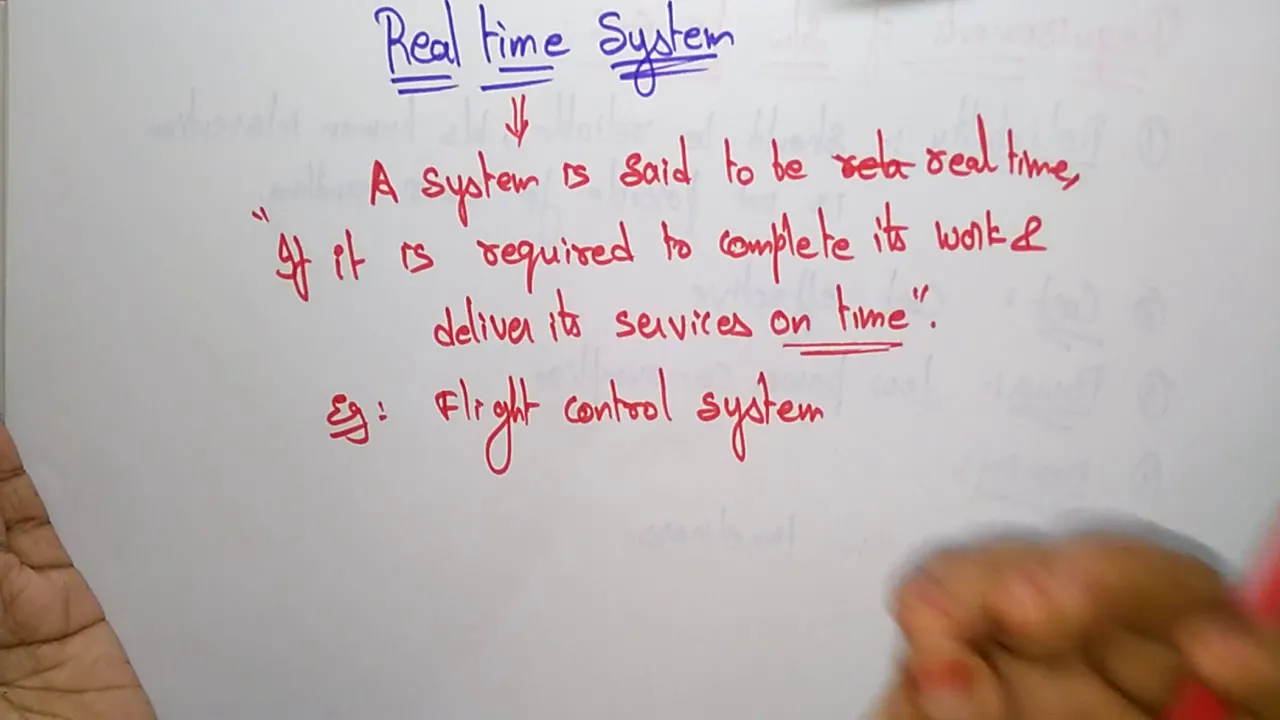 Real time System
A system is said to be reta real time,
"If it is required to complete its work &
deliver its services on time".
Eg: Flight control system